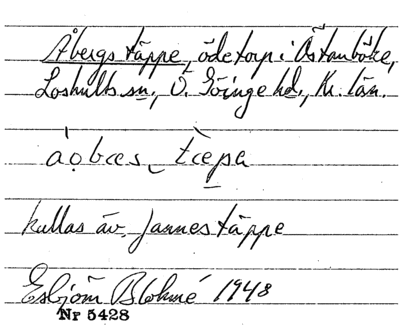 Åbergs täppe, ödetorp i Östanböke,
Loshults sn, Ö. Göinge hd., Kr. län.
àọbæs tæpa
kallas äv. Jannes täppe
Esbjörn Blohmé 1948
Nr 5428